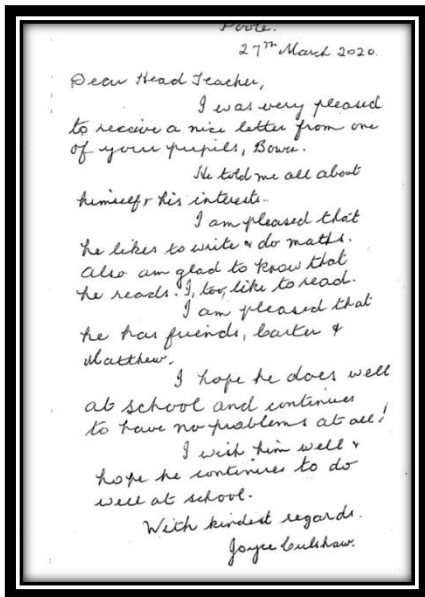 Poole.
27th March 2020.
Dear Head Teacher,
I was very pleased
to receive a nice letter from one
of your pupils, Bowe.
He told me all about
himself & his interests..
I am pleased that
he likes to write & do maths.
Also am glad to know that
he reads. I, too, like to read.
I am pleased that
he has friends, Carter &
Matthew.
I hope he does well
at school and continues
to have no problems at all!
I wish him well &
hope he continues to do
well at school.
With kindest regards.
Joyce Culshaw.